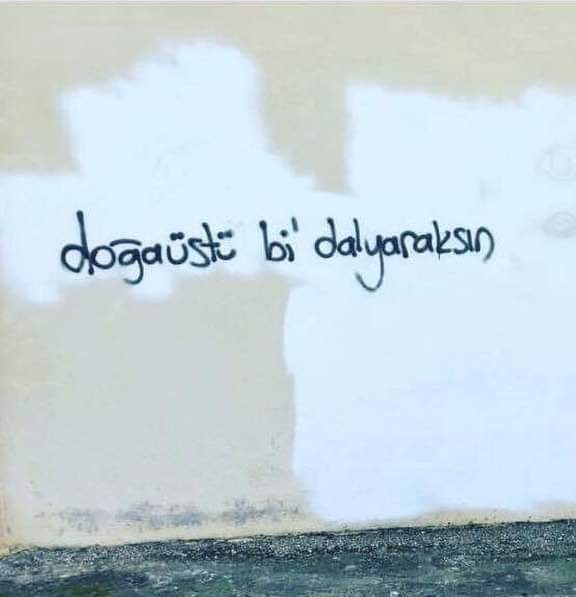 doğaüstü bi' dalyaraksın